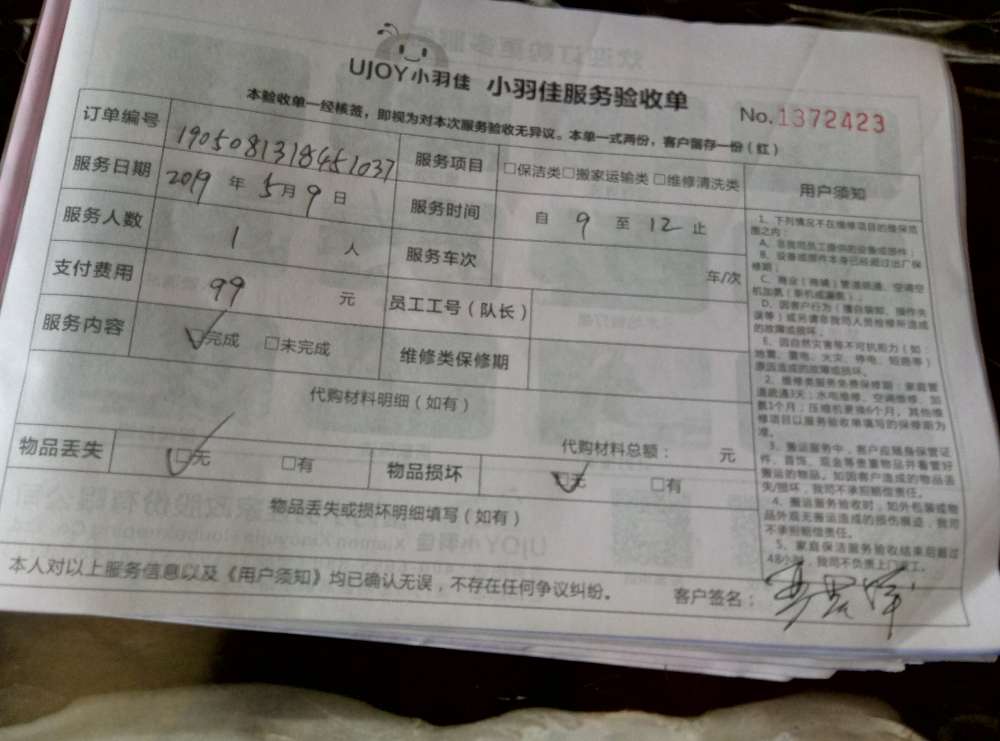 UJOY小羽佳 小羽佳服务验收单
No.1372423
本验收单一经核签，即视为对本次服务验收无异议。本单一式两份，客户留存一份（红）
订单编号 1905081318451037 服务项目 □保洁类□搬家运输类 □维修清洗类 用户须知
服务日期 2019 年 5 月 9 日 服务时间 自 9 至 12 止
服务人数 1 人 服务车次 车/次
支付费用 99 元 员工工号（队长）
服务内容 ☑完成 □未完成 维修类保修期
代购材料明细（如有）
代购材料总额： 元
物品丢失 ☑无 □有 物品损坏 ☑无 □有
物品丢失或损坏明细填写（如有）
1、下列情况不在维修项目的维保范
围之内：
A、非我司员工提供的设备或部件；
B、设备或部件本身已经超过出厂保
修期；
C、商业（商铺）管道疏通、空调空
机加氟（新机或漏氟）；
D、因客户行为（擅自装卸、操作失
误等）或另请非我司人员维修所造成
的故障或损坏。
E、因自然灾害等不可抗拒力（如：
地震、雷电、火灾、停电、短路等）
原因造成的故障或损坏。
2、维修类服务免费保修期：家庭管
道疏通3天；水电维修、空调维修、加
氟1个月；压缩机更换6个月，其他维
修项目以服务验收单填写的保修期为
准。
3、搬运服务中，客户应随身保管证
件、首饰、现金等贵重物品并看管好
搬运的物品。如因客户造成的物品丢
失/损坏，我司不承担赔偿责任。
4、搬运服务验收时，如外包装或物
品外观无搬运造成的损伤痕迹，我司
不承担赔偿责任。
5、家庭保洁服务验收结束后超过
48小时，我司不负责上门返工。
本人对以上服务信息以及《用户须知》均已确认无误，不存在任何争议纠纷。 客户签名：